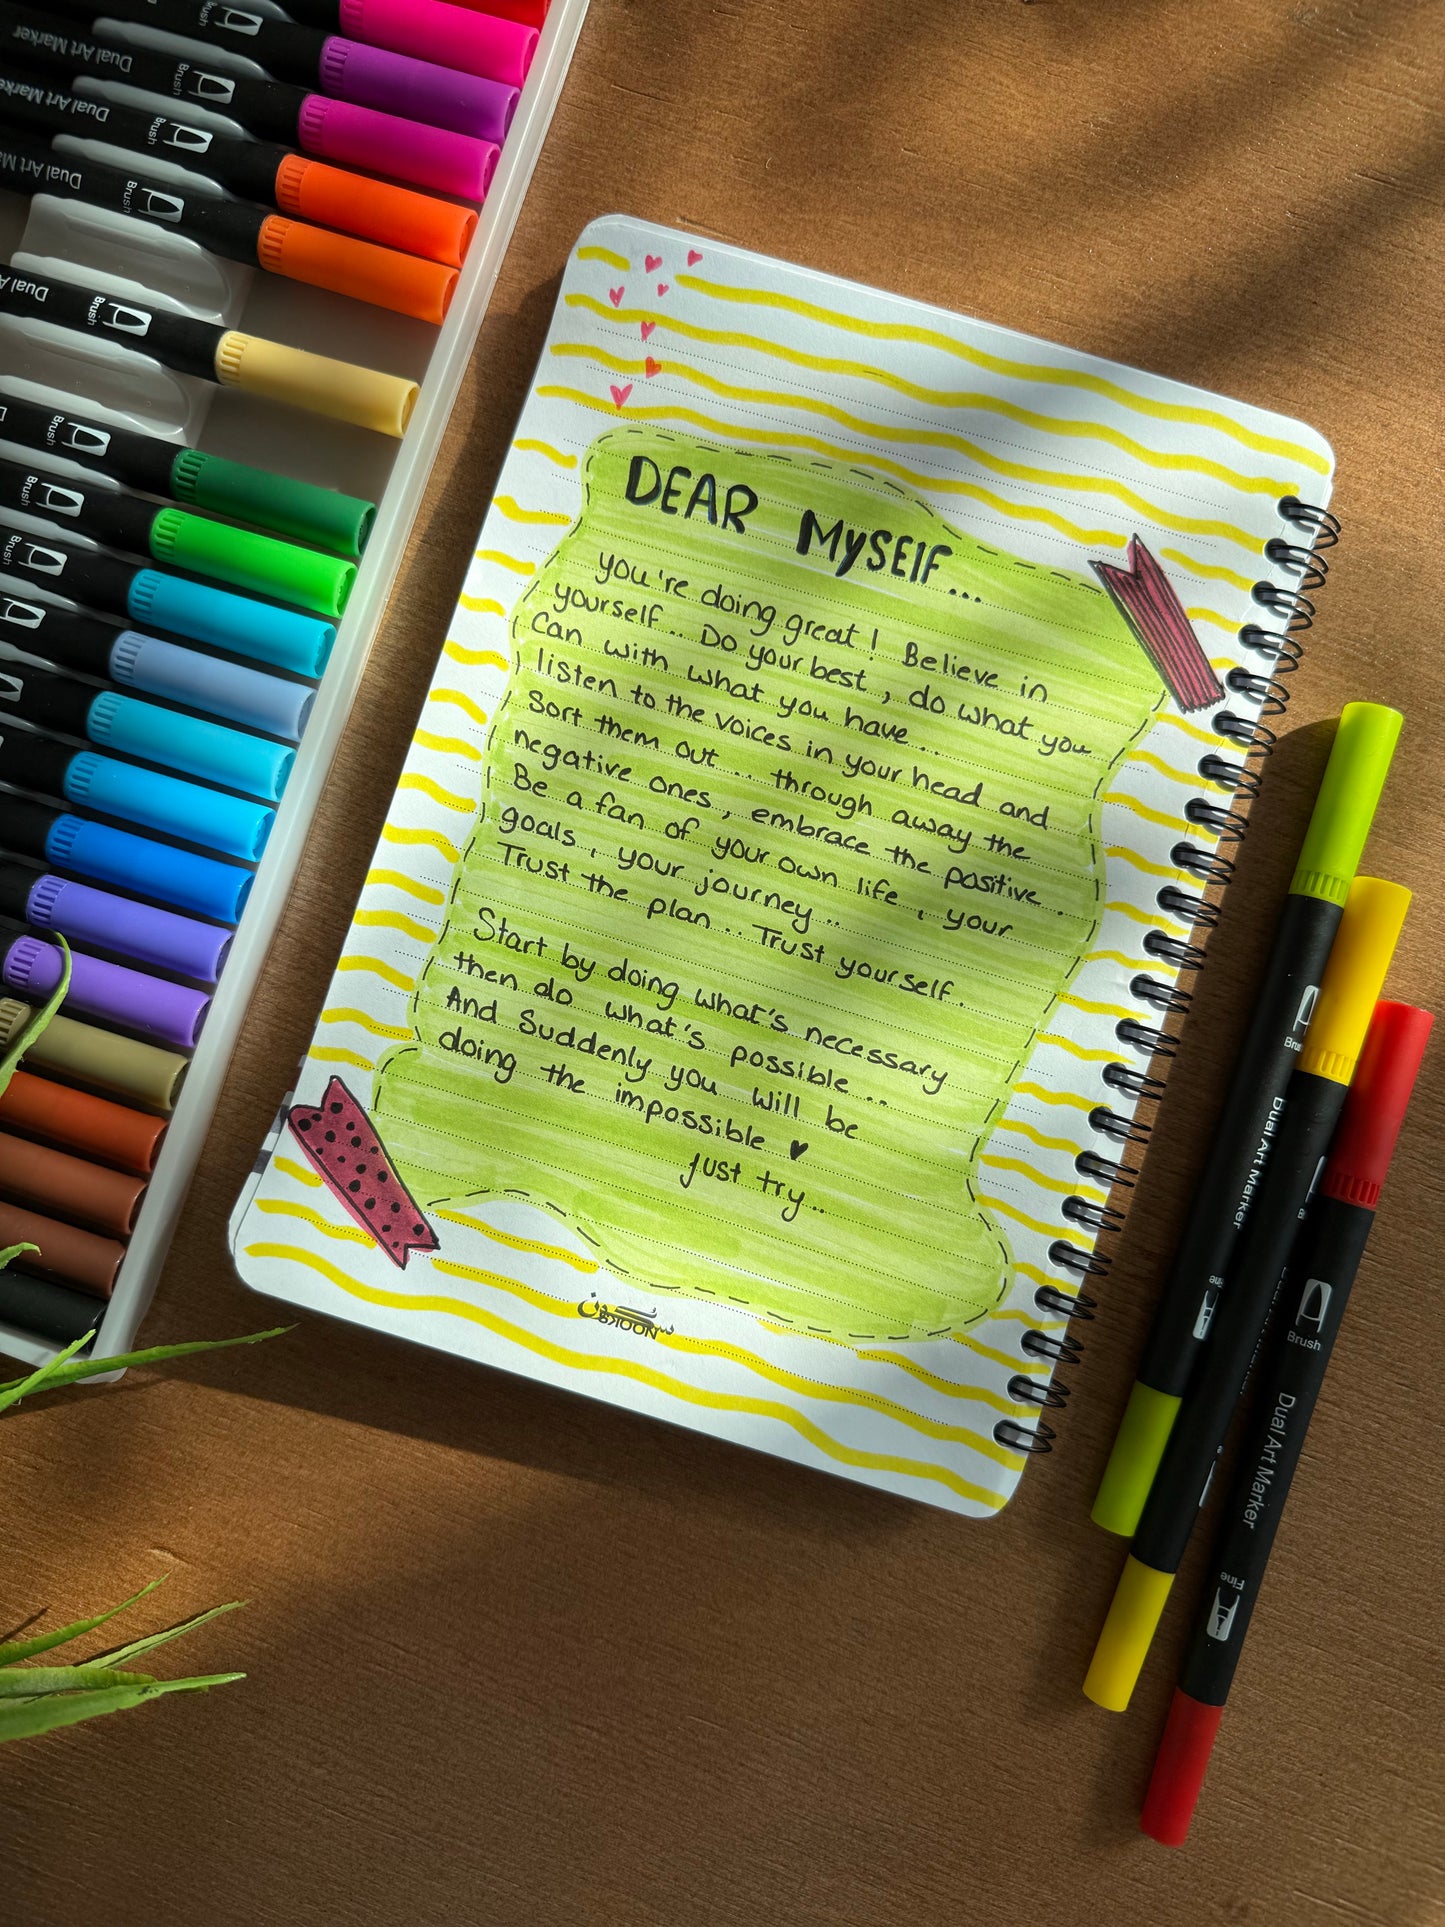 DEAR MYSElF...
you're doing great! Believe in
yourself.. Do your best, do what you
Can with what you have...
listen to the voices in your head and
Sort them out... through away the
negative ones, embrace the positive.
Be a fan of your own life, your
goals, your journey..
Trust the plan.. Trust yourself.
Start by doing what's necessary
then do what's possible..
And Suddenly you will be
doing the impossible ♥
just try..
BKOON
Dual Art Marker
Brush
Dual Art Marker
Brush
Dual Art Marker
Brush
Dual Art Ma
Brush
Dual A
Brush
Brush
Brush
Brush
Brush
Dual Art Marker
Brush
Dual Art Marker
Fine